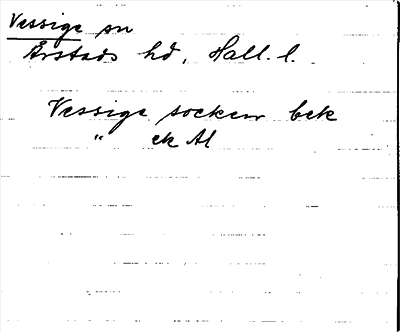 Vessige sn
Årstads hd, Hall. l.
Vessige socken bek
" ek Al